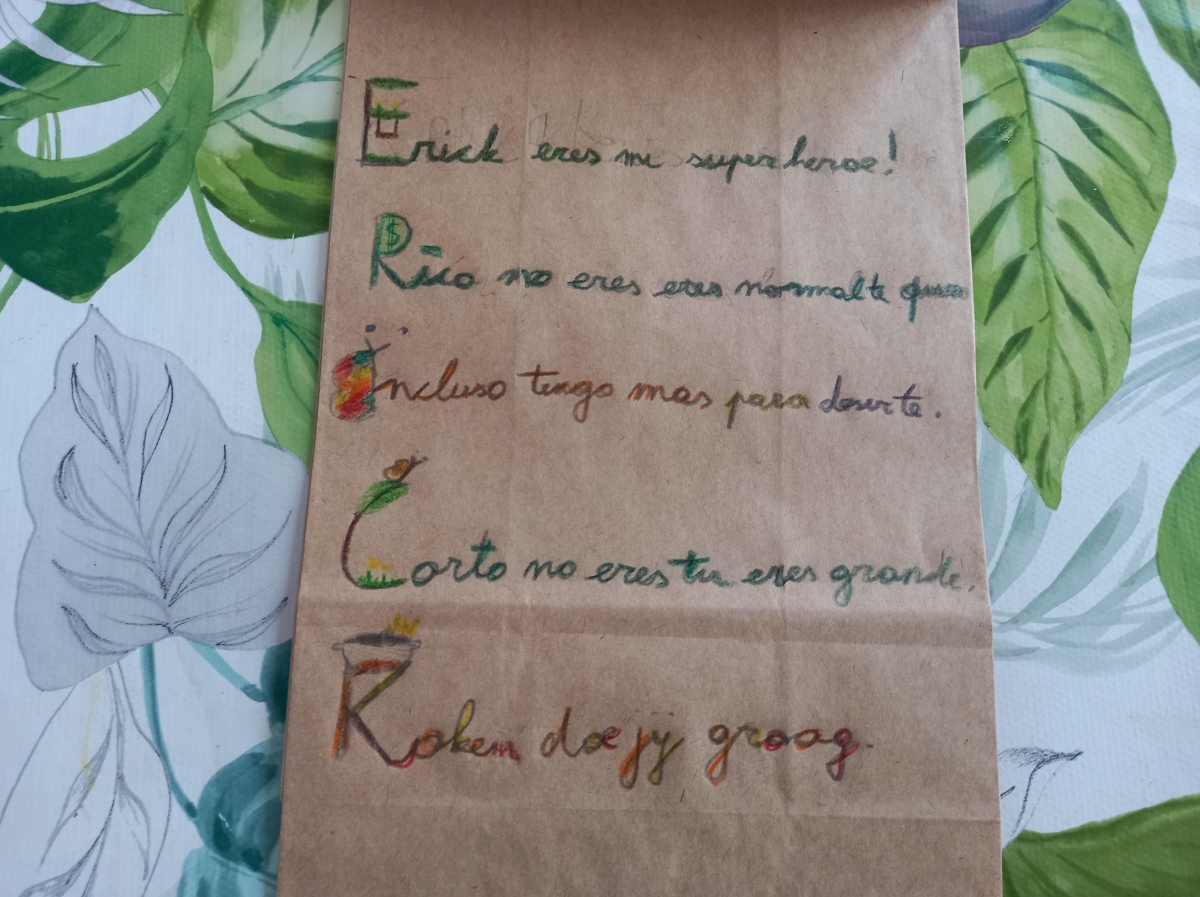 Erick eres mi superheroe!
Rico no eres eres normal te
Incluso tengo mas para desirte.
Corto no eres tu eres grande.
Koken doe jij graag.